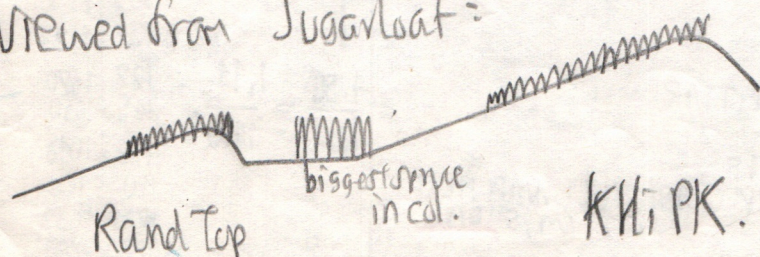 Viewed from Sugarloaf:
biggest spruce
in col.
Rand Top
KHi PK.